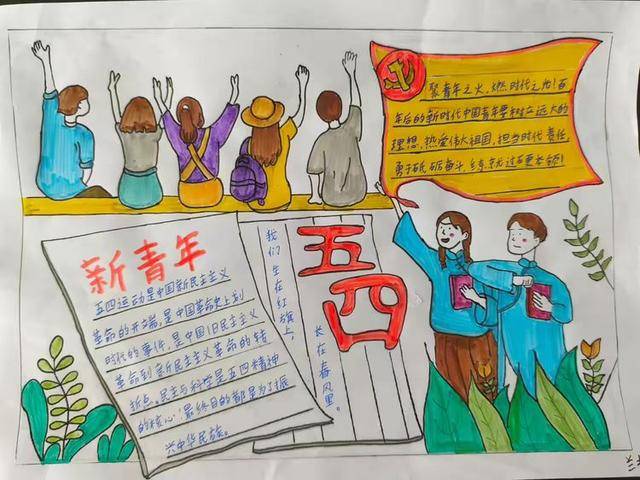 聚青年之火，燃时代之光！百
年后的新时代中国青年要树立远大的
理想，热爱伟大祖国，担当时代责任，
勇于砥砺奋斗，练就过硬本领！
新青年
五四运动是中国新民主主义
革命的开端，是中国革命史上划
时代的事件，是中国旧民主主义
革命到新民主主义革命的转
折点。民主与科学是五四精神
的核心，最终目的都是为了振
兴中华民族。
我们生在红旗上，
长在春风里。
五四